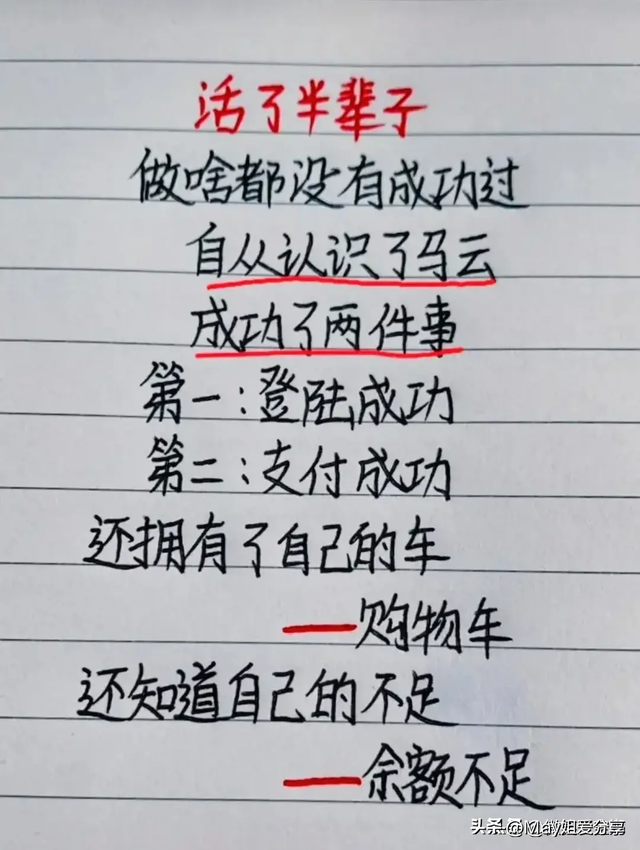 活了半辈子
做啥都没有成功过
自从认识了马云
成功了两件事
第一:登陆成功
第二:支付成功
还拥有了自己的车
——购物车
还知道自己的不足
——余额不足